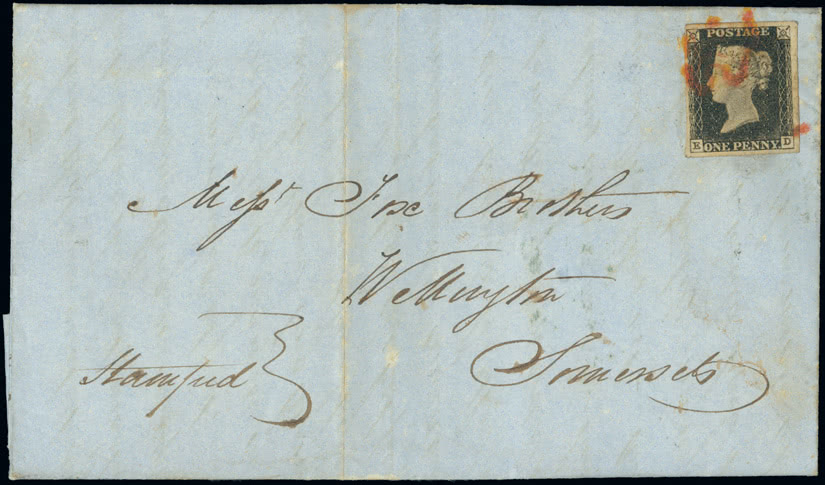 POSTAGE
E ONE PENNY D
Messrs Fox Brothers
Wellington
Somersets
Stamped